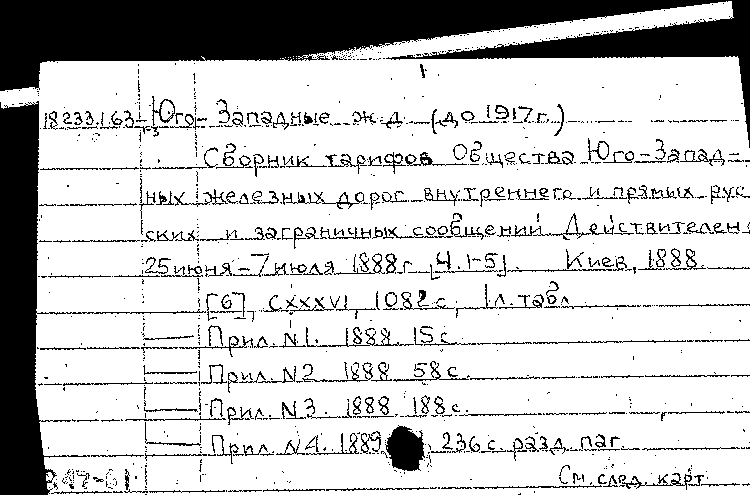 1
18233.1.63- Юго-Западные ж.д. (до 1917г.)
1-3
Сборник тарифов Общества Юго-Запад-
ных железных дорог внутреннего и прямых рус
ских и заграничных сообщений Действителен с
25 июня-7 июля 1888г [Ч.1-5]. Киев, 1888.
[6], CXXXVI, 1082 с., 1л. табл
Прил. N1. 1888. 15 с.
Прил. N2 1888 58 с.
Прил. N3. 1888. 188 с.
Прил. N4. 1889 236 с. разд. паг.
См. след. карт.